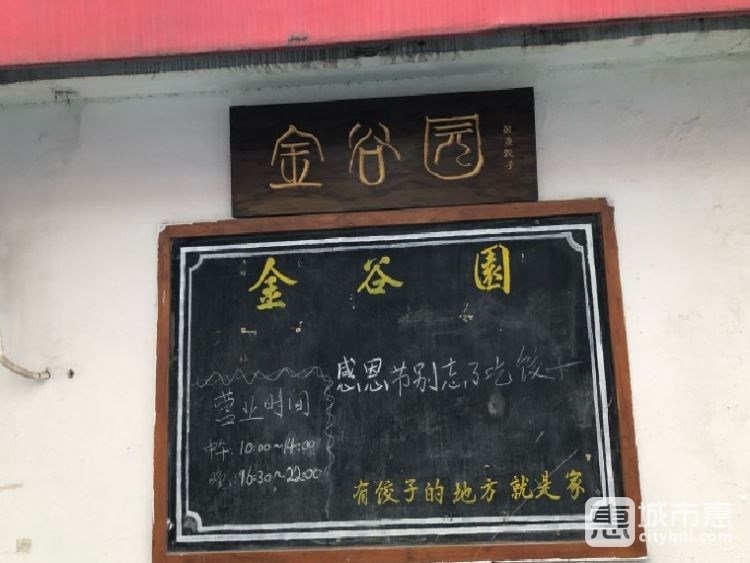 金谷园
饺子
金谷園
感恩节别忘了吃饺子
营业时间
中午:10:00~14:00
晚:16:30~22:00
有饺子的地方就是家
惠城市惠
cityhui.com